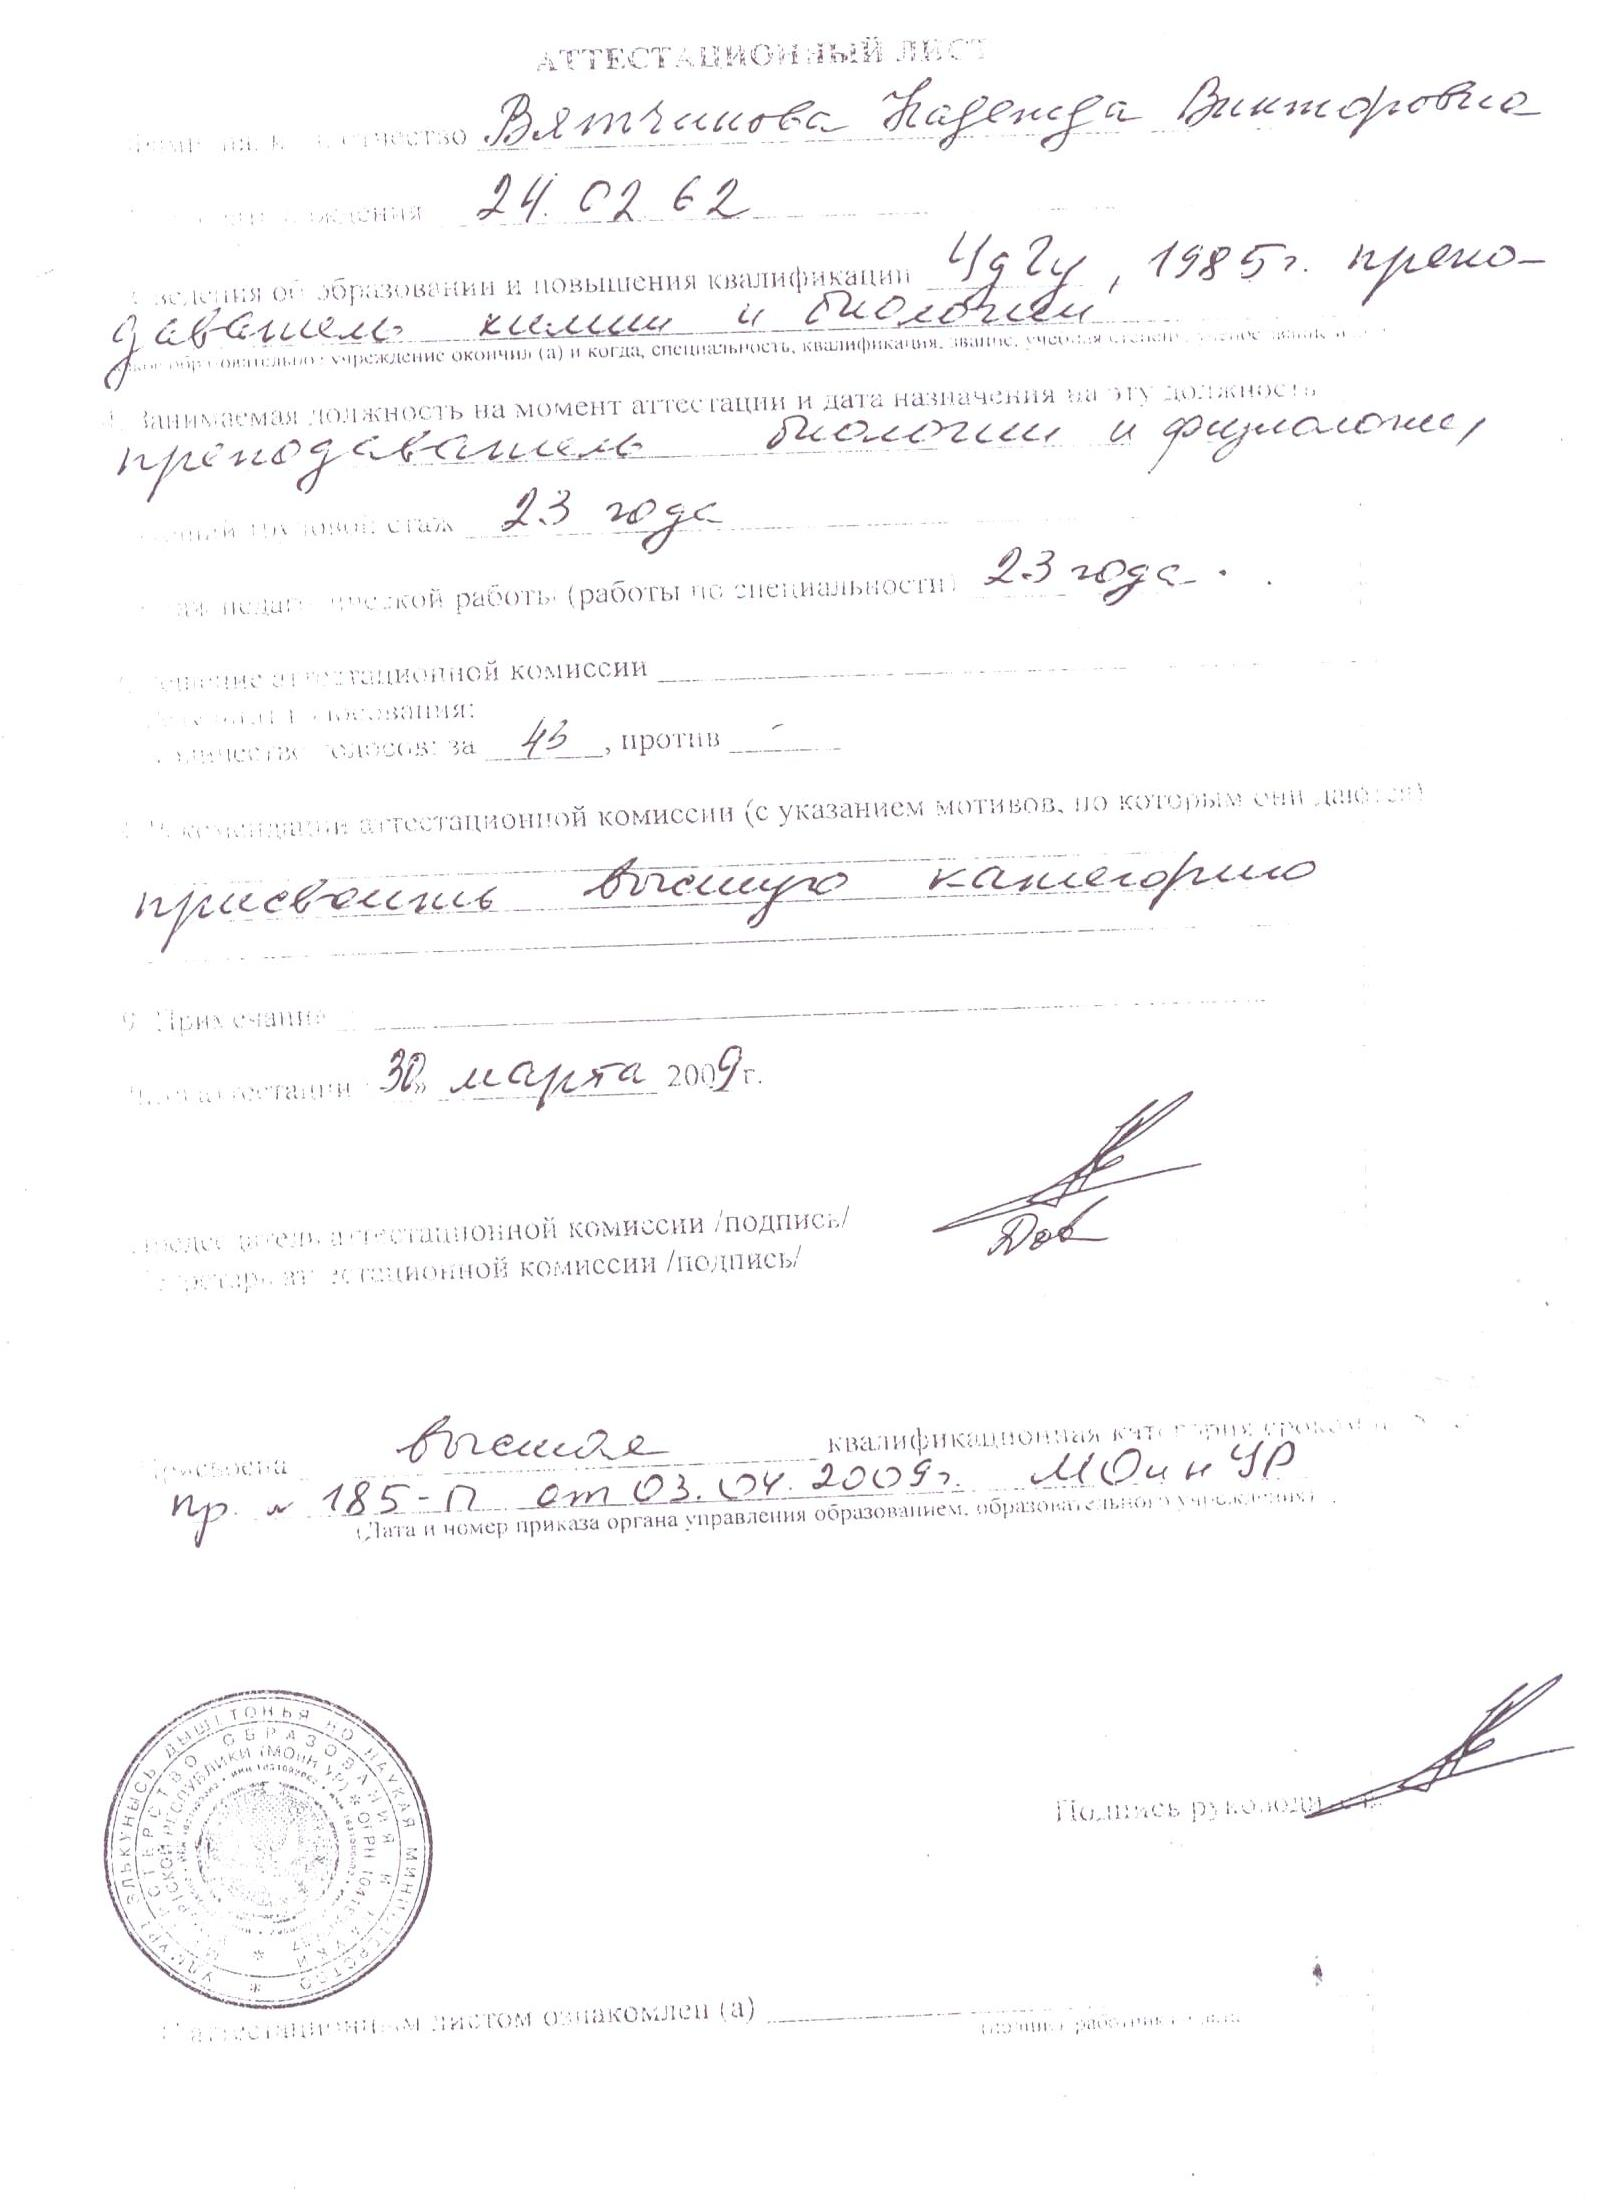 АТТЕСТАЦИОННЫЙ ЛИСТ
отчество Вятчинова Надежда Викторовна
рождения 24.02 62
Сведения об образовании и повышения квалификации УдГу, 1985г. препо-
даватель химии и биологии
какое образовательное учреждение окончил (а) и когда, специальность, квалификация, звание, ученая степень, ученое звание и
4. Занимаемая должность на момент аттестации и дата назначения на эту должность
преподаватель биологии и физиологии,
трудовой стаж 23 года
Стаж педагогической работы (работы по специальности) 23 года.
Решение аттестационной комиссии
голосования:
Количество голосов: за 43, против -
Рекомендации аттестационной комиссии (с указанием мотивов, по которым они даются)
присвоить высшую категорию
9. Примечание
Дата аттестации «30» марта 2009г.
Председатель аттестационной комиссии /подпись/
Секретарь аттестационной комиссии /подпись/
Присвоена высшая квалификационная категория сроком
пр. № 185-П от 03.04.2009г. МОиН УР
(Дата и номер приказа органа управления образованием, образовательного учреждения)
УДМУРТ ЭЛЬКУНЫСЬ ДЫШЕТОНЪЯ НО НАУКАЯ МИНИСТЕРСТВО
МИНИСТЕРСТВО ОБРАЗОВАНИЯ И НАУКИ
РЕСПУБЛИКИ (МОиН УР) * ОГРН
Подпись руководителя
С аттестационным листом ознакомлен (а)
(подпись работника, дата)